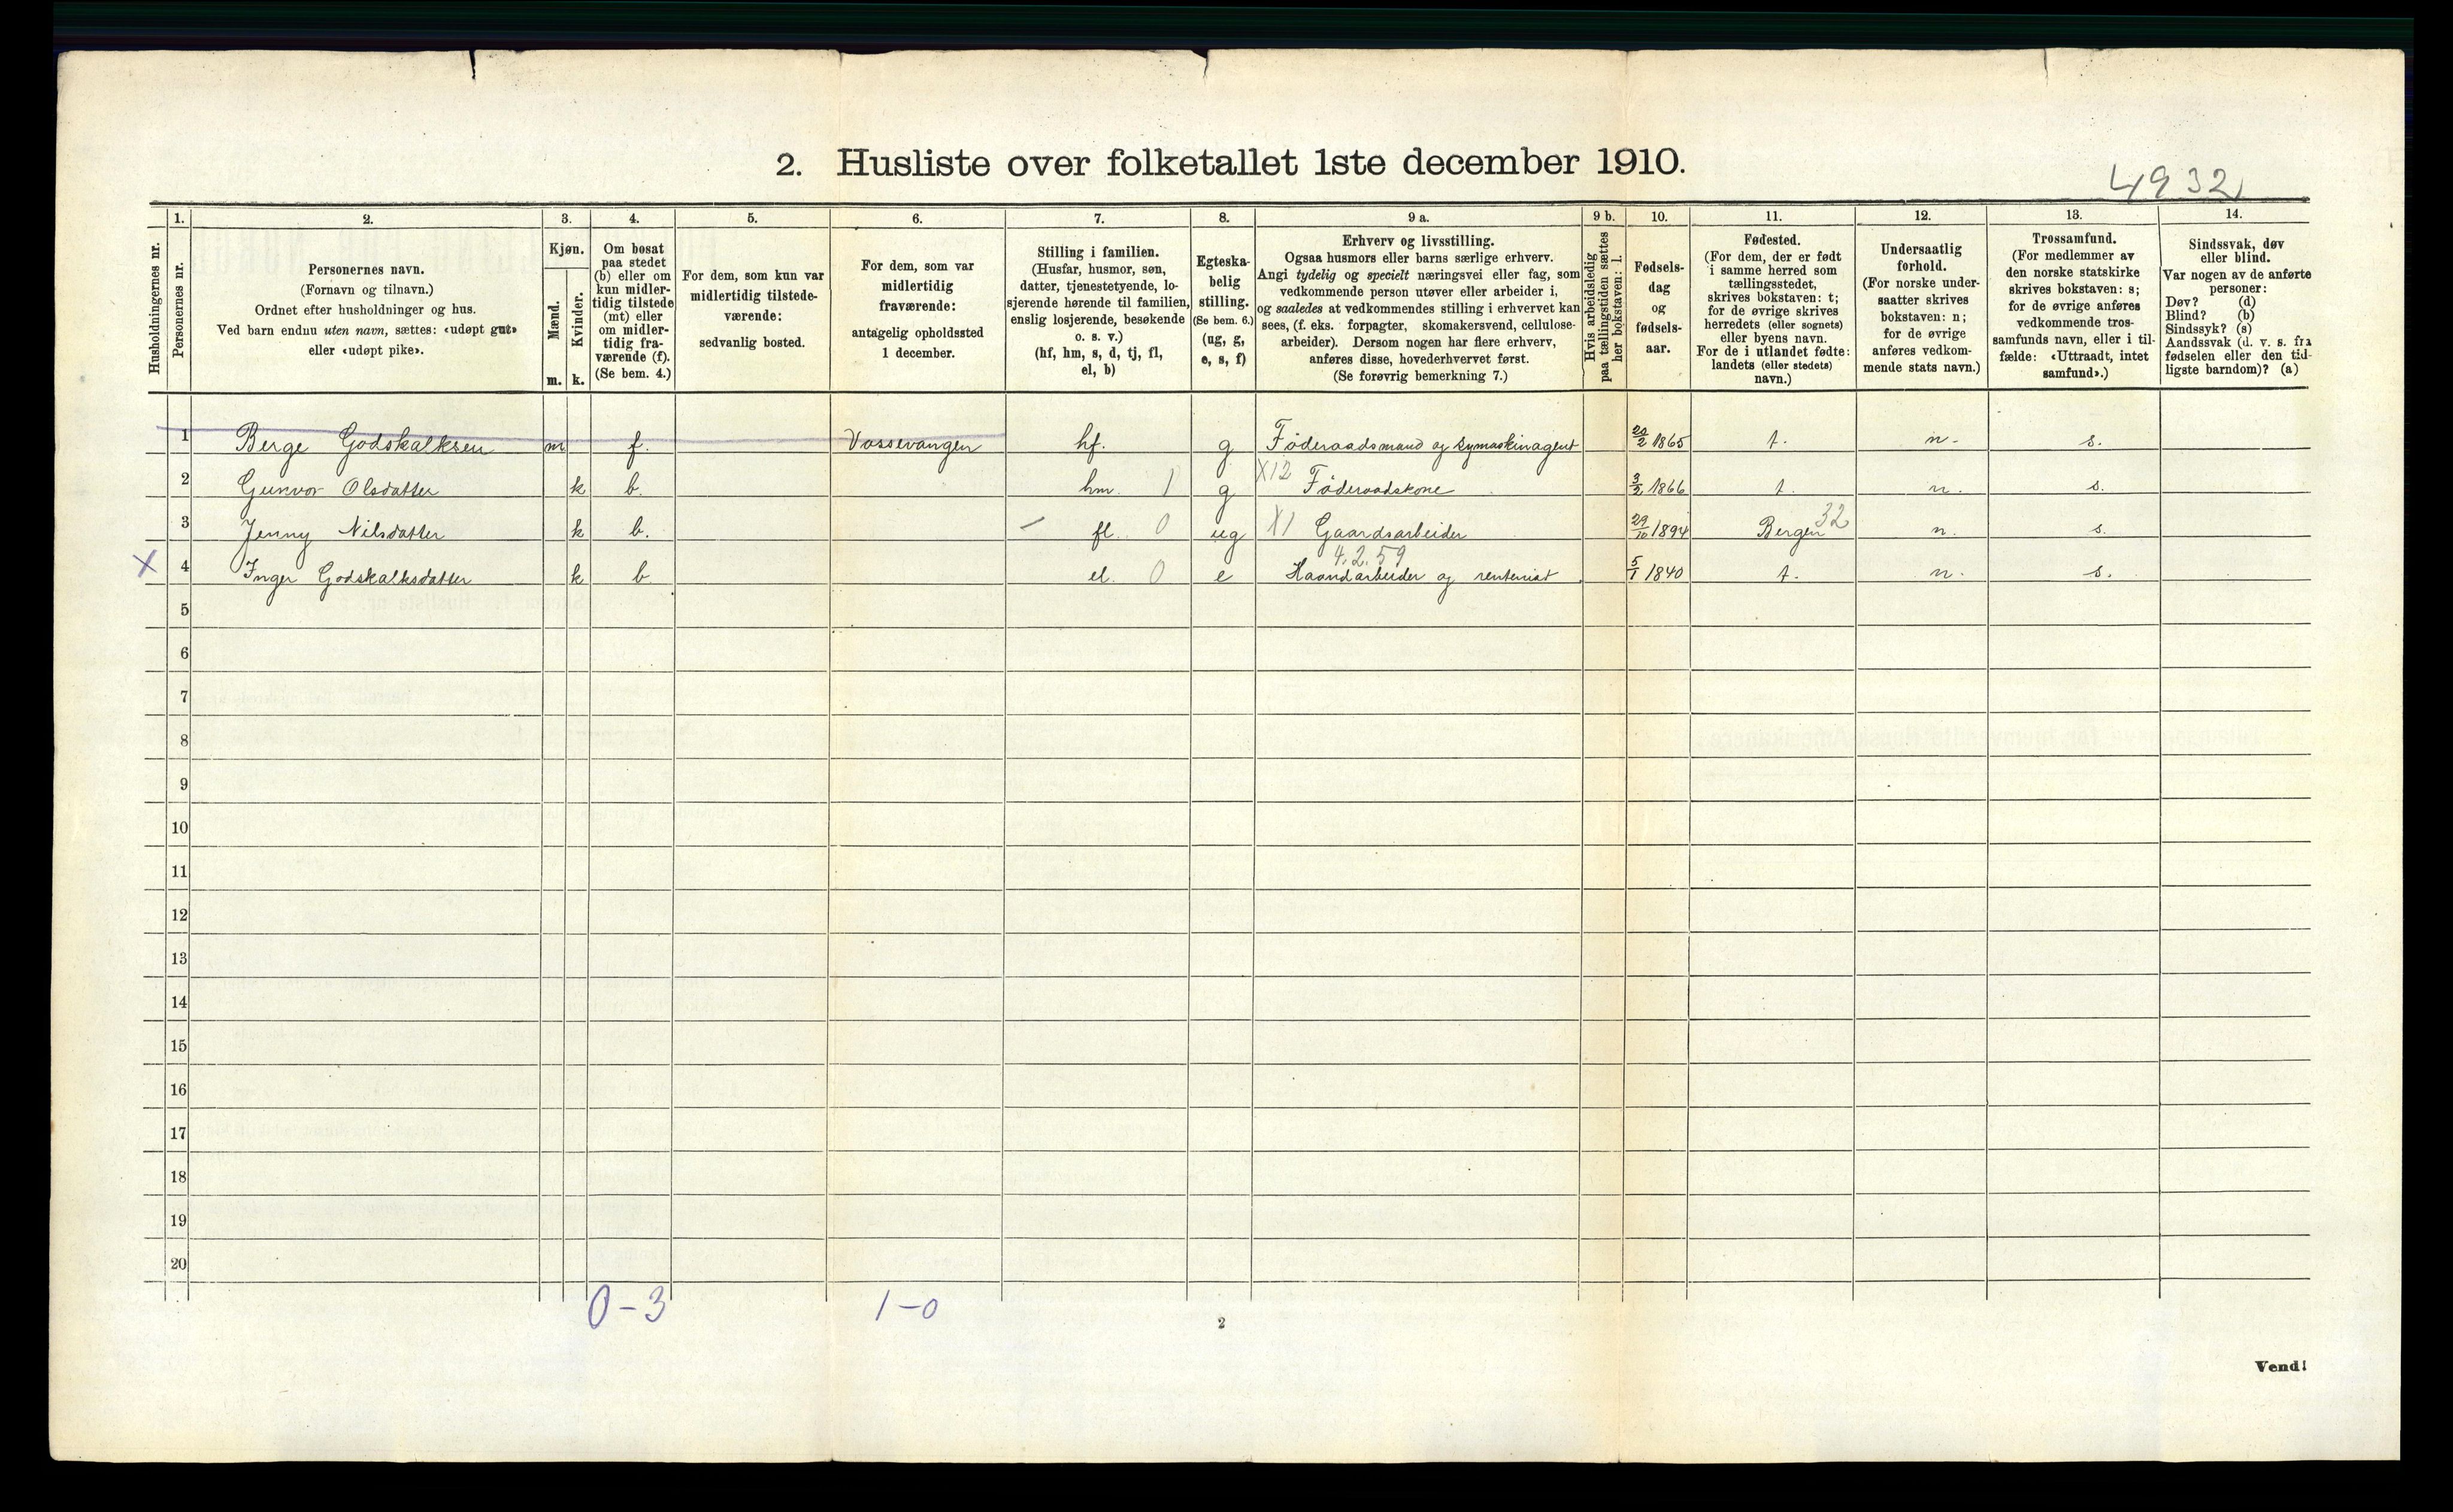 2. Husliste over folketallet 1ste december 1910.
4932
1. 2. 3. 4. 5. 6. 7. 8. 9 a. 9 b. 10. 11. 12. 13. 14.
Husholdningernes nr.
Personernes nr.
Personernes navn.
(Fornavn og tilnavn.)
Ordnet efter husholdninger og hus.
Ved barn endnu uten navn, sættes: «udøpt gut»
eller «udøpt pike».
Kjøn.
Mænd.
m.
Kvinder.
k.
Om bosat
paa stedet
(b) eller om
kun midler-
tidig tilstede
(mt) eller
om midler-
tidig fra-
værende (f).
(Se bem. 4.)
For dem, som kun var
midlertidig tilstede-
værende:
sedvanlig bosted.
For dem, som var
midlertidig
fraværende:
antagelig opholdssted
1 december.
Stilling i familien.
(Husfar, husmor, søn,
datter, tjenestetyende, lo-
sjerende hørende til familien,
enslig losjerende, besøkende
o. s. v.)
(hf, hm, s, d, tj, fl,
el, b)
Egteska-
belig
stilling.
(Se bem. 6.)
(ug, g,
e, s, f)
Erhverv og livsstilling.
Ogsaa husmors eller barns særlige erhverv.
Angi tydelig og specielt næringsvei eller fag, som
vedkommende person utøver eller arbeider i,
og saaledes at vedkommendes stilling i erhvervet kan
sees, (f. eks. forpagter, skomakersvend, cellulose-
arbeider). Dersom nogen har flere erhverv,
anføres disse, hovederhvervet først.
(Se forøvrig bemerkning 7.)
Hvis arbeidsledig
paa tællingstiden sættes
her bokstaven: l.
Fødsels-
dag
og
fødsels-
aar.
Fødested.
(For dem, der er født
i samme herred som
tællingsstedet,
skrives bokstaven: t;
for de øvrige skrives
herredets (eller sognets)
eller byens navn.
For de i utlandet fødte:
landets (eller stedets)
navn.)
Undersaatlig
forhold.
(For norske under-
saatter skrives
bokstaven: n;
for de øvrige
anføres vedkom-
mende stats navn.)
Trossamfund.
(For medlemmer av
den norske statskirke
skrives bokstaven: s;
for de øvrige anføres
vedkommende tros-
samfunds navn, eller i til-
fælde: «Uttraadt, intet
samfund».)
Sindssvak, døv
eller blind.
Var nogen av de anførte
personer:
Døv? (d)
Blind? (b)
Sindssyk? (s)
Aandssvak (d. v. s. fra
fødselen eller den tid-
ligste barndom)? (a)
1 Berge Godskalksen m f. Vossevangen hf. g Føderaadsmand og symaskinagent 20/2 1865 t. n. s.
2 Gunvor Olsdatter k b. hm. 1 g X12 Føderaadskone 3/2 1866 t. n. s.
3 Jenny Nilsdatter k b. fl. 0 ug X1 Gaardsarbeider 29/10 1894 Bergen 32 n. s.
4.2.59
X 4 Inger Godskalksdatter k b el. 0 e Haandarbeider og rentenist 5/1 1840 t. n. s.
5
6
7
8
9
10
11
12
13
14
15
16
17
18
19
20
0-3 1-0
2
Vend!